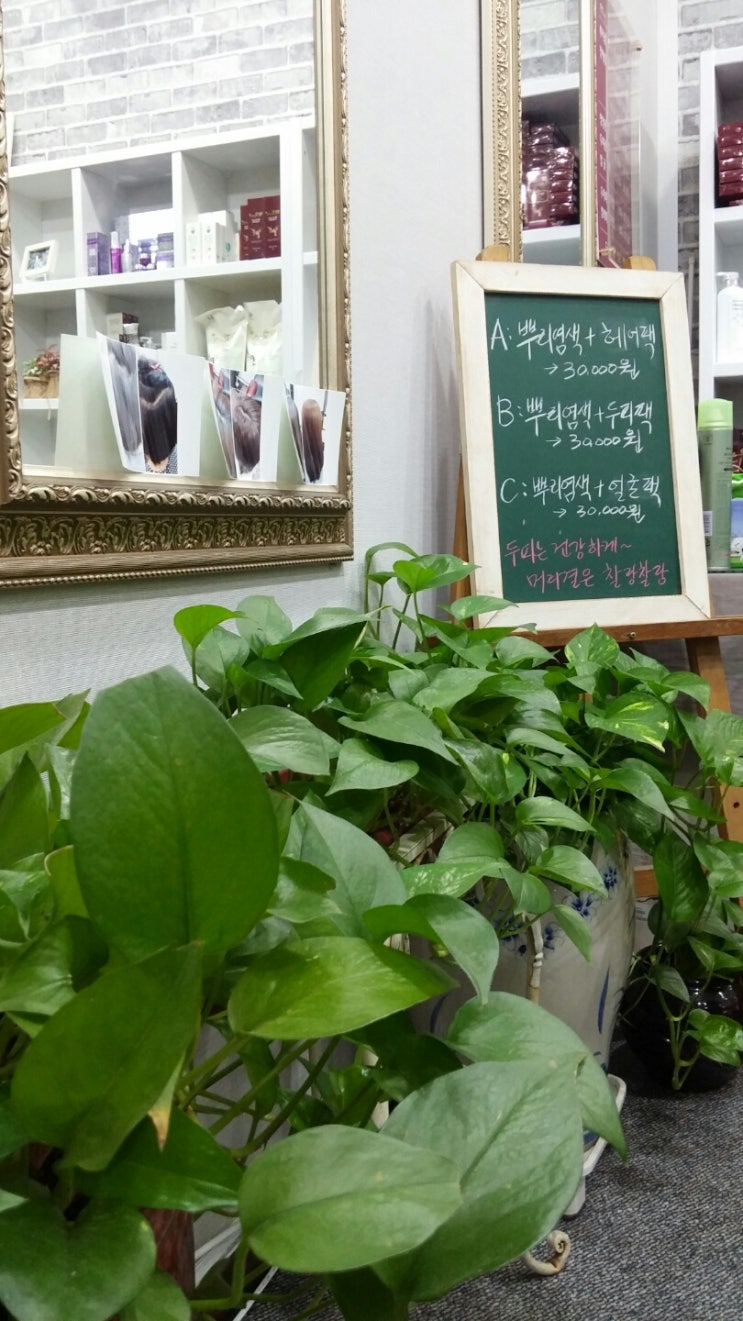 A: 뿌리염색 + 헤어팩
→ 30.000원
B: 뿌리염색 + 두피팩
→ 30.000원
C: 뿌리염색 + 얼굴팩
→ 30.000원
두피는 건강하게~
머리결은 찰랑찰랑